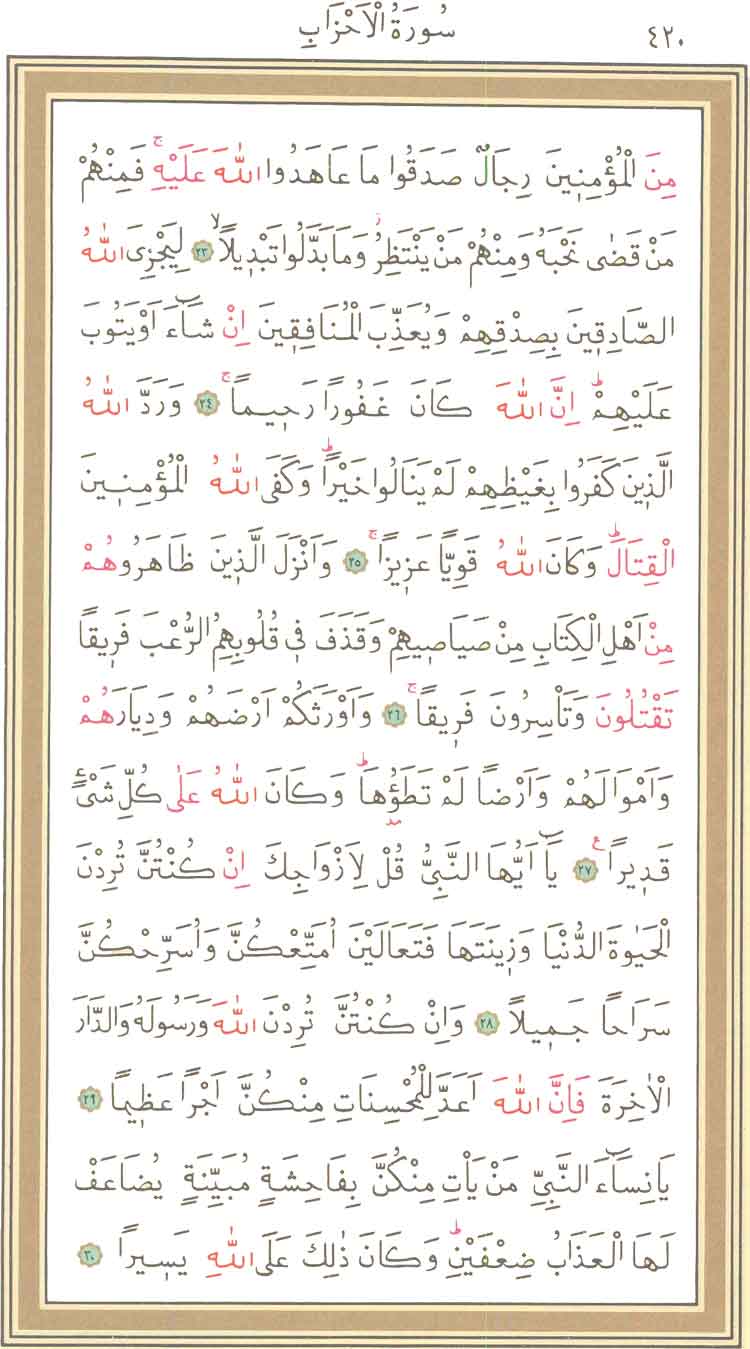 ٤٢٠ سُورَةُ الْاَحْزَابِ
مِنَ الْمُؤْمِنٖينَ رِجَالٌ صَدَقُوا مَا عَاهَدُوا اللّٰهَ عَلَيْهِۚ فَمِنْهُمْ
مَنْ قَضٰى نَحْبَهُ وَمِنْهُمْ مَنْ يَنْتَظِرُۘ وَمَا بَدَّلُوا تَبْدٖيلاًۙ ﴿٢٣﴾ لِيَجْزِىَ اللّٰهُ
الصَّادِقٖينَ بِصِدْقِهِمْ وَيُعَذِّبَ الْمُنَافِقٖينَ اِنْ شَٓاءَ اَوْ يَتُوبَ
عَلَيْهِمْؕ اِنَّ اللّٰهَ كَانَ غَفُورًا رَحٖيماًۚ ﴿٢٤﴾ وَرَدَّ اللّٰهُ
الَّذٖينَ كَفَرُوا بِغَيْظِهِمْ لَمْ يَنَالُوا خَيْرًاؕ وَكَفَى اللّٰهُ الْمُؤْمِنٖينَ
الْقِتَالَؕ وَكَانَ اللّٰهُ قَوِيًّا عَزٖيزًاۚ ﴿٢٥﴾ وَاَنْزَلَ الَّذٖينَ ظَاهَرُوهُمْ
مِنْ اَهْلِ الْكِتَابِ مِنْ صَيَاصٖيهِمْ وَقَذَفَ فٖى قُلُوبِهِمُ الرُّعْبَ فَرٖيقاً
تَقْتُلُونَ وَتَاْسِرُونَ فَرٖيقاًۚ ﴿٢٦﴾ وَاَوْرَثَكُمْ اَرْضَهُمْ وَدِيَارَهُمْ
وَاَمْوَالَهُمْ وَاَرْضاً لَمْ تَطَؤُ۫هَاؕ وَكَانَ اللّٰهُ عَلٰى كُلِّ شَىْءٍ
قَدٖيرًاࣖ ﴿٢٧﴾ يَٓا اَيُّهَا النَّبِىُّ قُلْ لِاَزْوَاجِكَ اِنْ كُنْتُنَّ تُرِدْنَ
الْحَيٰوةَ الدُّنْيَا وَزٖينَتَهَا فَتَعَالَيْنَ اُمَتِّعْكُنَّ وَاُسَرِّحْكُنَّ
سَرَاحاً جَمٖيلاً ﴿٢٨﴾ وَاِنْ كُنْتُنَّ تُرِدْنَ اللّٰهَ وَرَسُولَهُ وَالدَّارَ
الْاٰخِرَةَ فَاِنَّ اللّٰهَ اَعَدَّ لِلْمُحْسِنَاتِ مِنْكُنَّ اَجْرًا عَظٖيماً ﴿٢٩﴾
يَا نِسَٓاءَ النَّبِىِّ مَنْ يَاْتِ مِنْكُنَّ بِفَاحِشَةٍ مُبَيِّنَةٍ يُضَاعَفْ
لَهَا الْعَذَابُ ضِعْفَيْنِؕ وَكَانَ ذٰلِكَ عَلَى اللّٰهِ يَسٖيرًا ﴿٣٠﴾